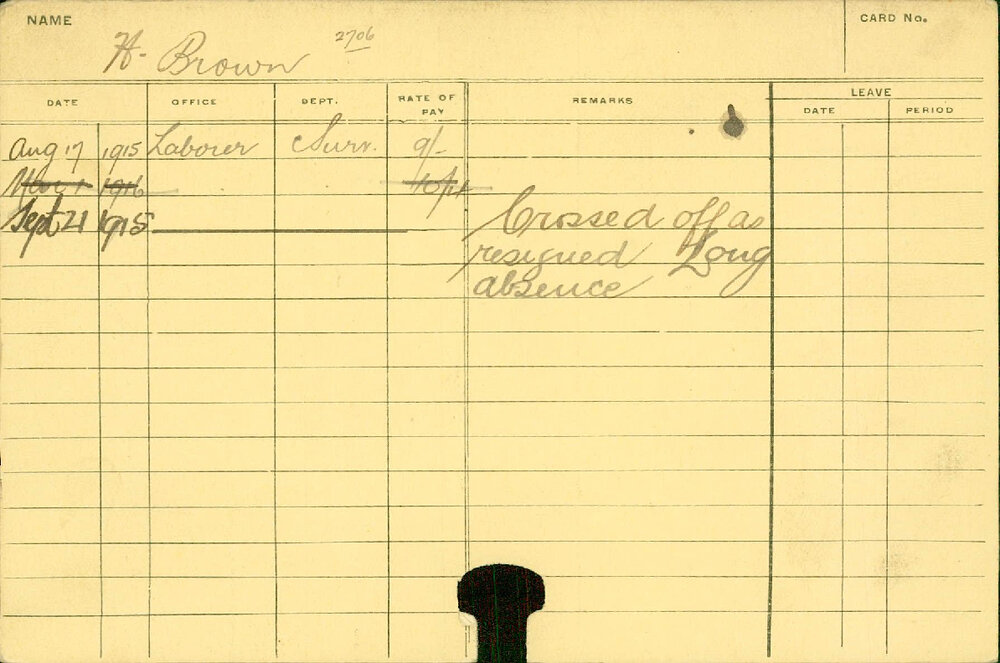 NAME
CARD No.
H. Brown 2706
DATE OFFICE DEPT. RATE OF PAY REMARKS LEAVE
DATE PERIOD
Aug 17 1915 Laborer Surv. 9/-
1916
Sept 21 1915 Crossed off as
resigned Long
absence